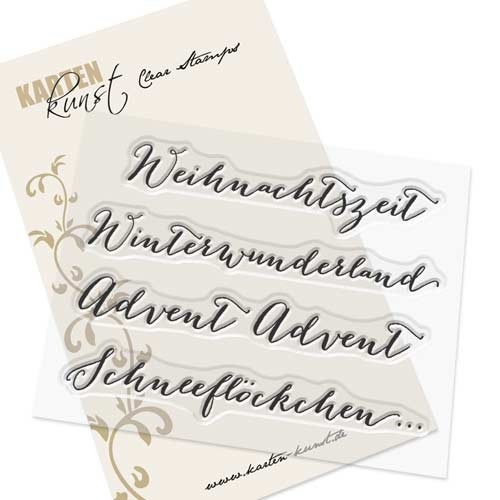 KARTEN
kunst Clear Stamps
Weihnachtszeit
Winterwunderland
Advent Advent
Schneeflöckchen...
www.karten-kunst.de